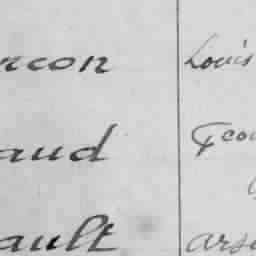 rcon Louis
aud Fcoi
ault arse